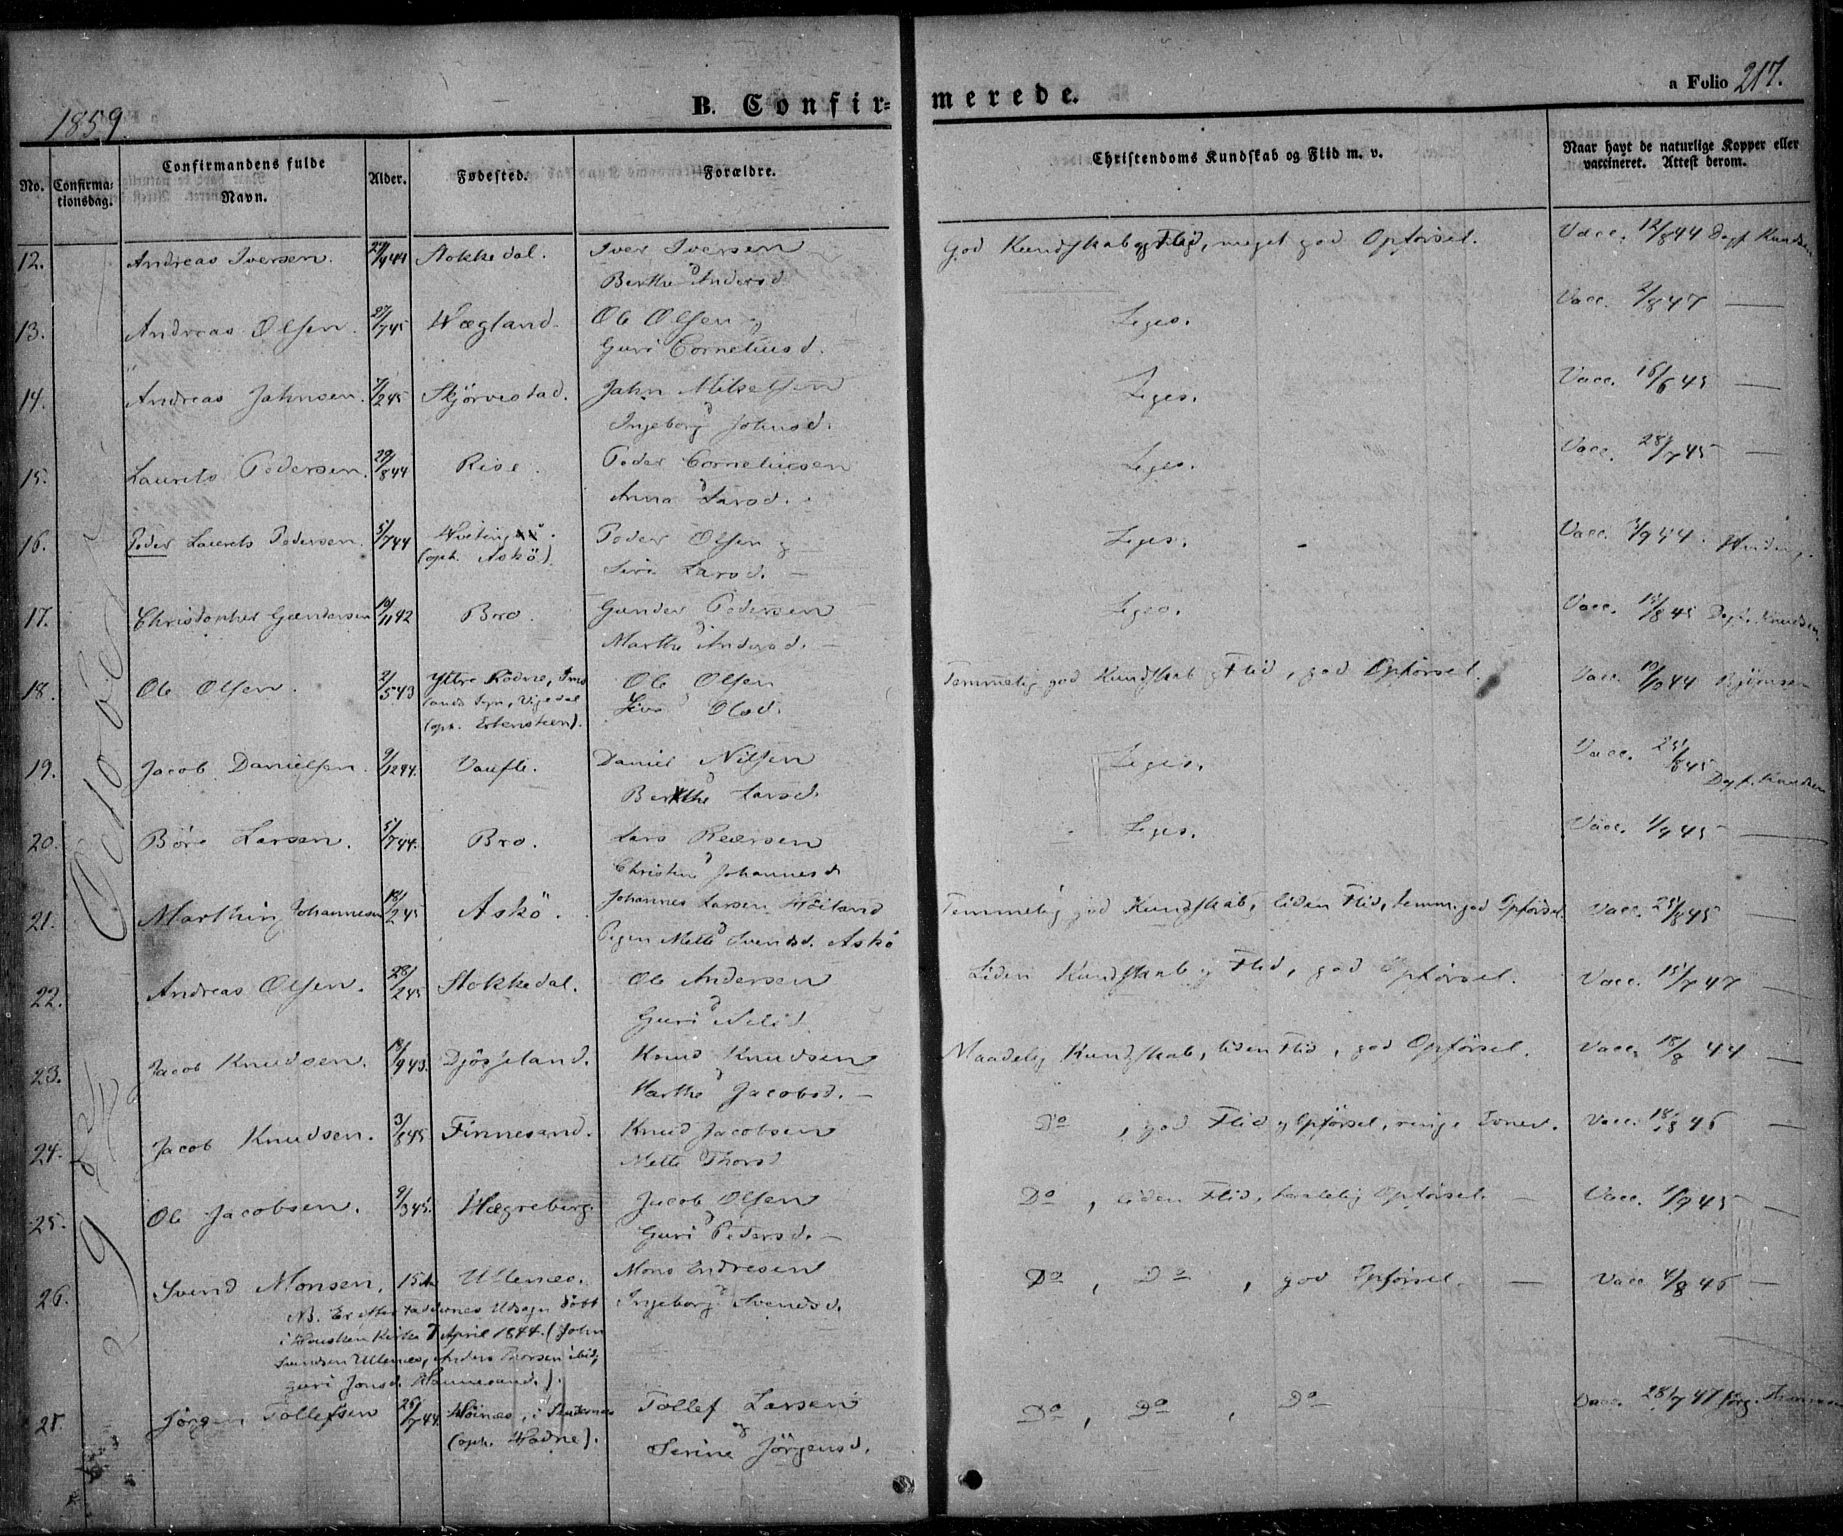 1859.
B. Confirmerede.
a Folio 217.
No.
Confirmationsdag.
Confirmandens fulde Navn.
Alder.
Fødested.
Forældre.
Christendoms Kundskab og Flid m. v.
Naar havt de naturlige Kopper eller vaccineret. Attest derom.
October
12. Andreas Iversen. Stokkedal. Iver Iversen God Kundskab og Flid, meget god Opførsel. Vacc. 12/8 44 Knudsen
Berthe Andersd
13. Andreas Olsen. 27/7 45 Wægland. Ole Olsen Liges. Vacc. 2/8 47 —
Guri Corneliusd.
14. Andreas Jahnsen. 7/2 45 Skjørvestad. Jahn Mikkelsen Liges. Vacc. 16/6 45 —
Ingeborg Johnsd.
15. Laurits Pedersen. 29/8 44 Rise. Peder Corneliusen Liges. Vacc. 28/7 45 —
Anna Larsd.
16. Peder Laurits Pedersen. 5/7 44 Peder Olsen Liges. Vacc. 3/9 44.
(oph. Askø). Siri Larsd. —
17. Christopher Gundersen 10/11 42 Bro. Gunder Pedersen Liges. Vacc. 15/8 45 Knudsen
Marthe Andersd. —
18. Ole Olsen. 2/5 43 Yttre Rødne, Ims Ole Olsen Temmelig god Kundskab og Flid, god Opførsel. Vacc. 10/9 44 Bjørnsen
lands Sgn, Vigedal Siva Olsd.
(oph. Eltensteen).
19. Jacob Danielsen. 9/12 44. Vaufle. Daniel Nilsen Liges. Vacc. 25/8 45
Berthe Larsd. Knudsen
20. Børe Larsen. 5/7 44. Bro. Lars Reiersen Liges. Vacc. 1/9 45 —
Christine Johannesd.
21. Marthin Johannesen 18/2 45 Askø. Johannes Larsen Temmelig god Kundskab, liden Flid, temm. god Opførsel Vacc. 25/8 45 —
Pigen Mette Svendsd. Askø
22. Andreas Olsen. 28/2 45 Stokkedal. Ole Andersen Liden Kundskab og Flid, god Opførsel. Vacc. 15/7 47 —
Guri Nilsd
23. Jacob Knudsen. 18/9 43. Djøsjeland. Knud Knudsen Maadelig Kundskab, liden Flid, god Opførsel. Vacc. 18/8 44 —
Marthe Jacobsd. —
24. Jacob Knudsen. 3/8 45 Finnesand. Knud Jacobsen Do, god Flid og Opførsel, ringe Evner. Vacc. 18/8 46 —
Mette Thorsd
25. Ole Jacobsen. 9/3 45. Hægreberg. Jacob Olsen Do, liden Flid, taalelig Opførsel. — Vacc. 1/9 45 —
Guri Pedersd. —
26. Svend Monsen. 15 Utlenes. Mons Andresen Do, Do, god Opførsel. — Vacc. 4/8 46 —
NB. Er efter Faderens Udsagn døbt Ingeborg Svendsd.
i Housken Kirke 7 April 1844. (John
Svendsen Utlenes, Anders Thorsen ibid,
Guri Jonsd. Hannesand.).
27. Jørgen Tollefsen 26/7 44 Høines, i Skudenes Tollef Larsen Do, Do, Do Vacc. 28/7 47
(oph. Hodne). Serine Jørgensd.